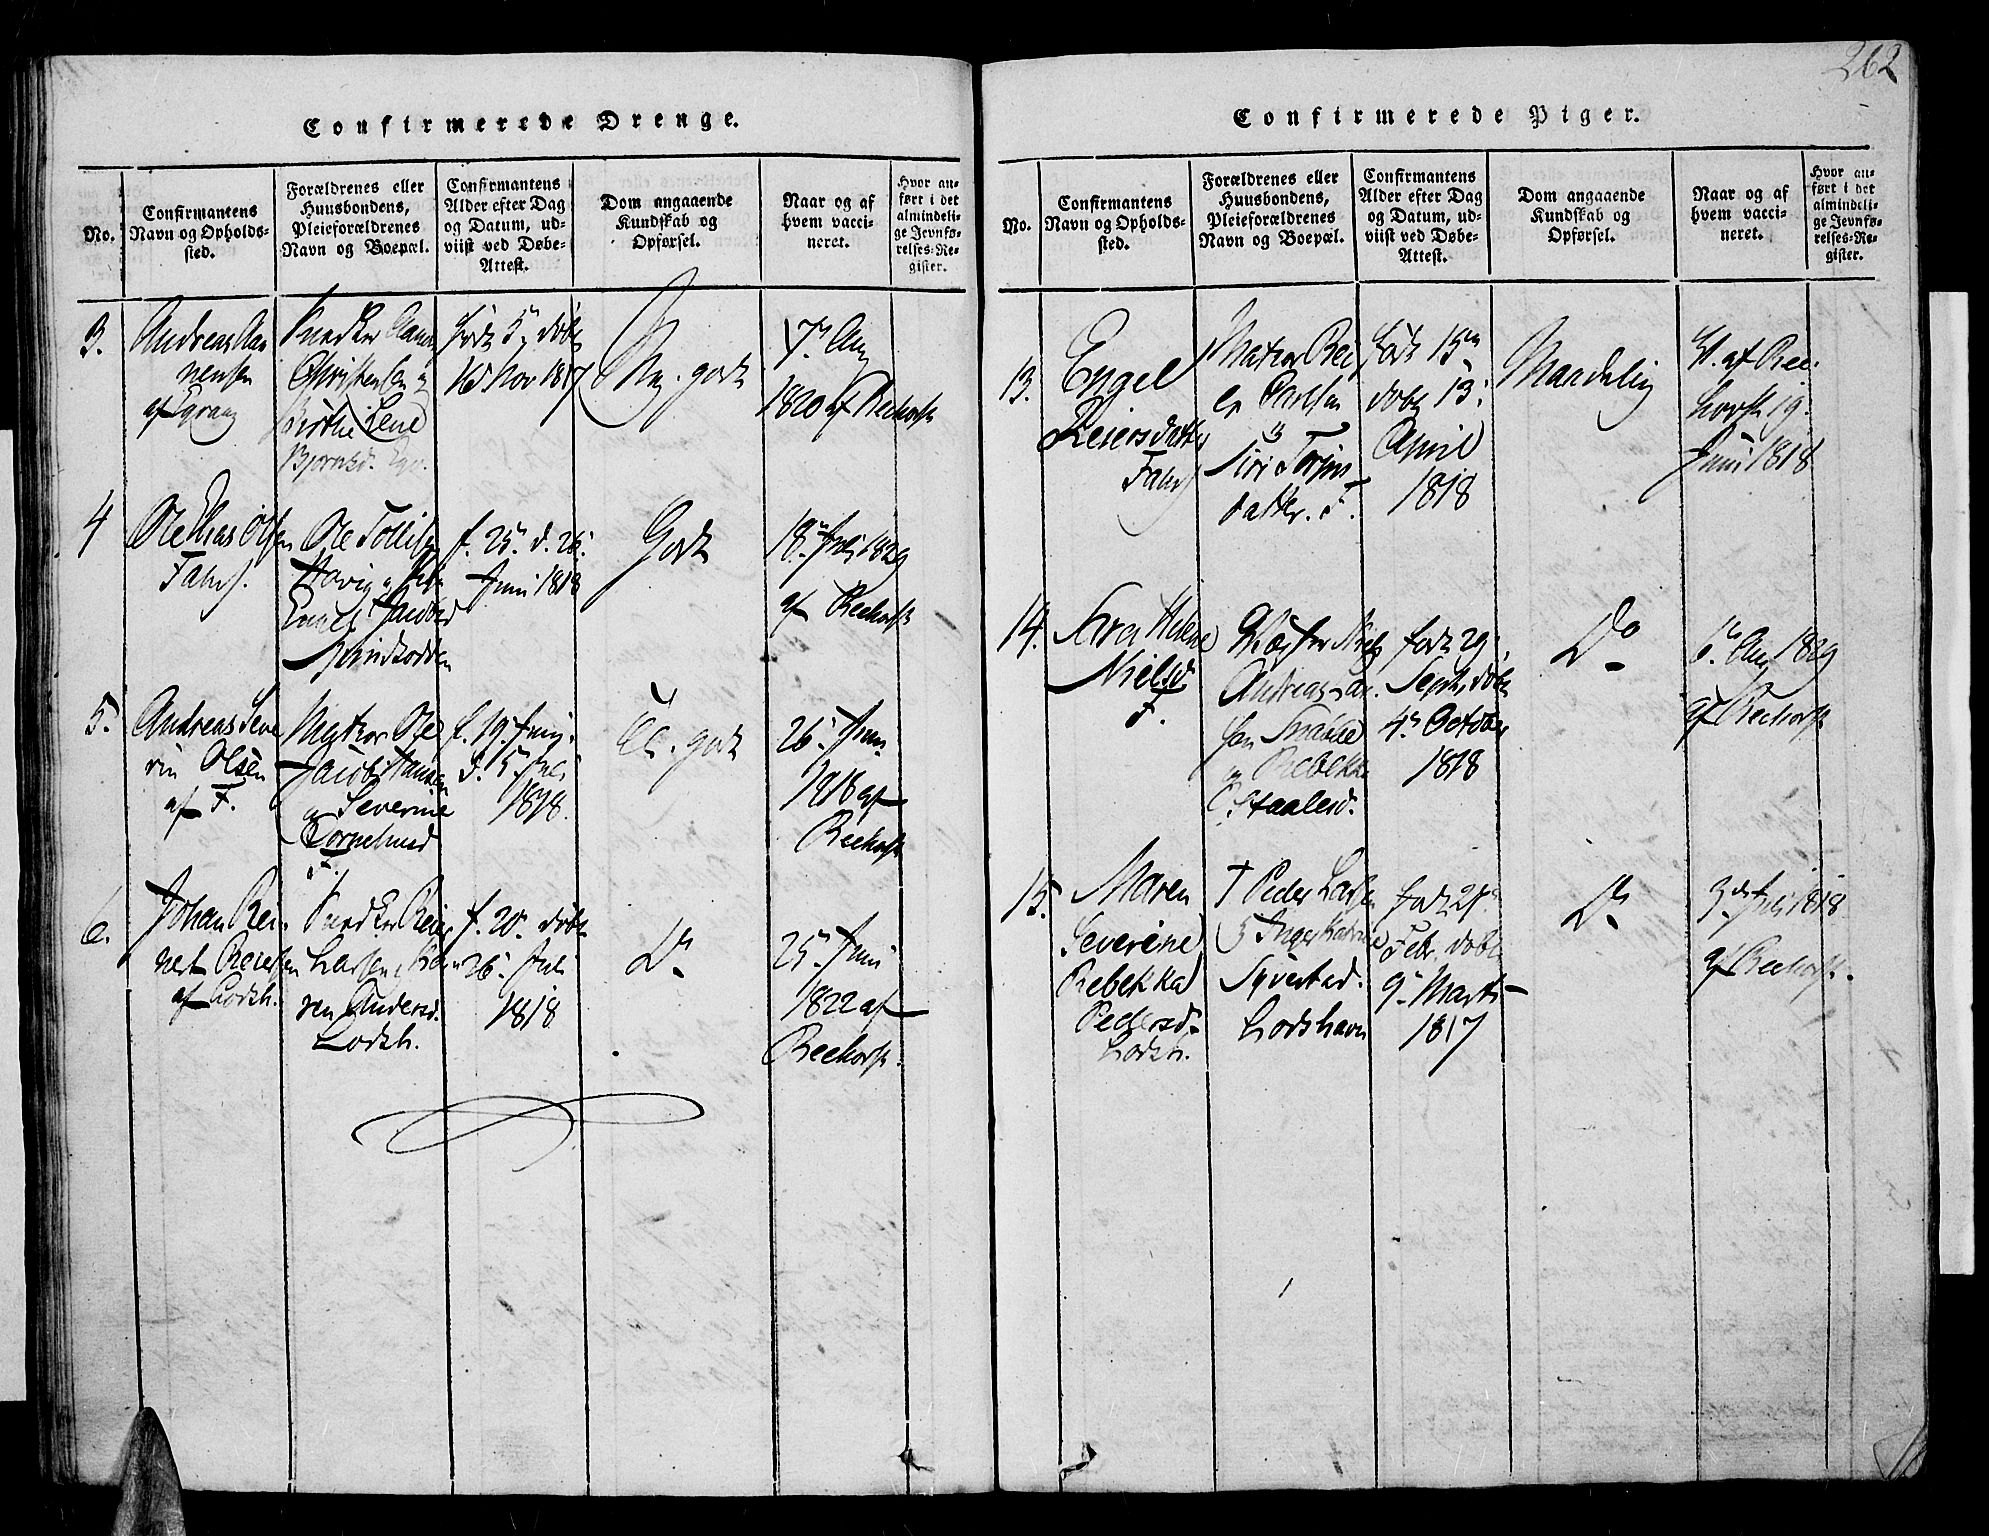 262
Confirmerede Drenge.
No.
Confirmantens
Navn og Opholds-
sted.
Forældrenes eller
Huusbondens,
Pleieforældrenes
Navn og Boepæl.
Confirmantens
Alder efter Dag
og Datum, ud-
viist ved Døbe-
Attest.
Dom angaaende
Kundskab og
Opførsel.
Naar og af
hvem vacci-
neret.
Hvor an-
ført i det
almindeli-
ge Jevnfø-
relses-Re-
gister.
3.
Andreas Aan
nensen
af Egvaag
Snedker Aanen
Christensen og
Birthe Lene
Bjørnsd. Egv.
født 5, døbt
16 Nov 1817
Mg. godt
7 Aug
1820 af Reehorst
4
Ole Elias Olsen
Fahrs.
Ole Tollisen
f. 25 d. 26.
Juni 1818
Godt
18 Juli 1829
af Reehorst
5.
Andreas Seve
rin Olsen
af F.
Ole
Jacob Hansen
og Severine
Corneliusd
F.
f. 19. Juni
d. 5 Juli
1818.
godt
26 Juni
1818 af
Reehorst
6.
Johan Rei-
nert Reiersen
af Lodsh.
Snedker Reier
Larsen og Ka-
ren Andersd.
Lodsh.
f. 20. døbt
26. Juli
1818
Do
25 Juni
1822 af
Reehorst.
Confirmerede Piger.
No.
Confirmantens
Navn og Opholds-
sted.
Forældrenes eller
Huusbondens,
Pleieforældrenes
Navn og Boepæl.
Confirmantens
Alder efter Dag
og Datum, ud-
viist ved Døbe-
Attest.
Dom angaaende
Kundskab og
Opførsel.
Naar og af
hvem vacci-
neret.
Hvor an-
ført i det
almindeli-
ge Jevnfø-
relses-Re-
gister.
13.
Engel
Reiersdatter
Fahrs.
Matros Rei
er Carlsen
og
Siri Torjus
datter. F.
født
døbt 13.
April
1818
Maadelig
af Ree-
horst 19.
Juni 1818
14.
Sara Helene
Nielsd
F.
Niels
Andreas
og Rebekka
C. Staalesd.
født 29.
Septr, døbt
4 October
1818
Do
6. Aug 1829
af Reehorst
15.
Maren
Severine
Rebekka
Pedersd.
Lodsh.
† Peder Larsen
og Inger Katrine
Syvertsd.
Lodshavn
født 21
Febr, døbt
9 Marts
1817
Do
3de Juli 1818
af Reehorst.